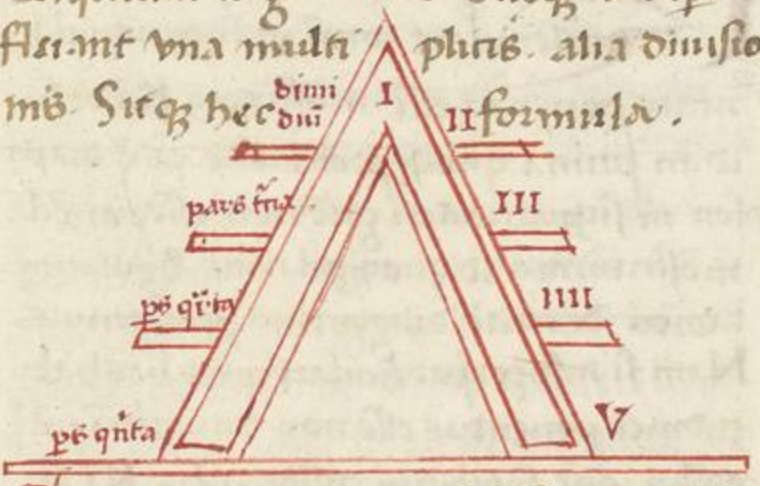 fierant vna multi plicis. alia diuisio
nis. Sitq; hec formula.
dimi
diu̅
I
II
pars t̅ria
III
ps qrta
IIII
ps qnta
V